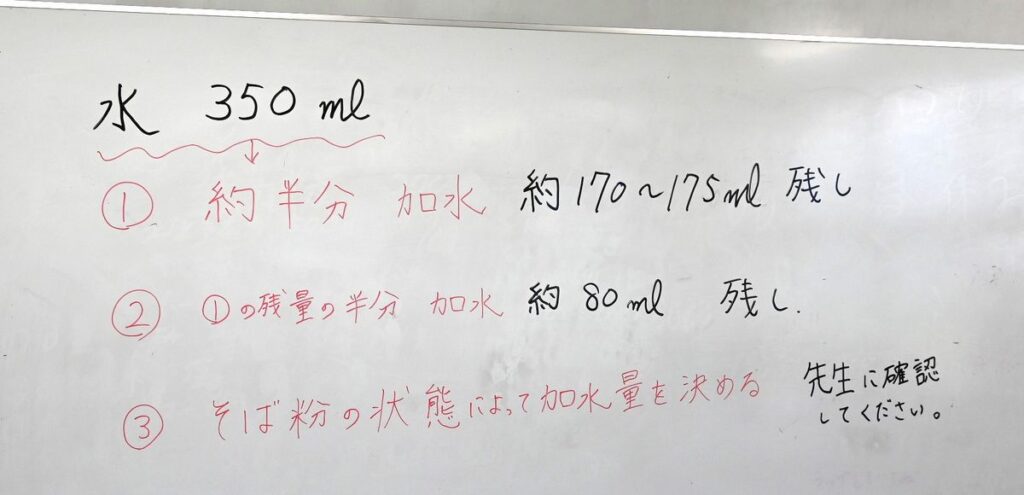 水 350 ml
① 約半分 加水 約170~175ml 残し
② ①の残量の半分 加水 約80ml 残し.
③ そば粉の状態によって加水量を決める 先生に確認
してください。